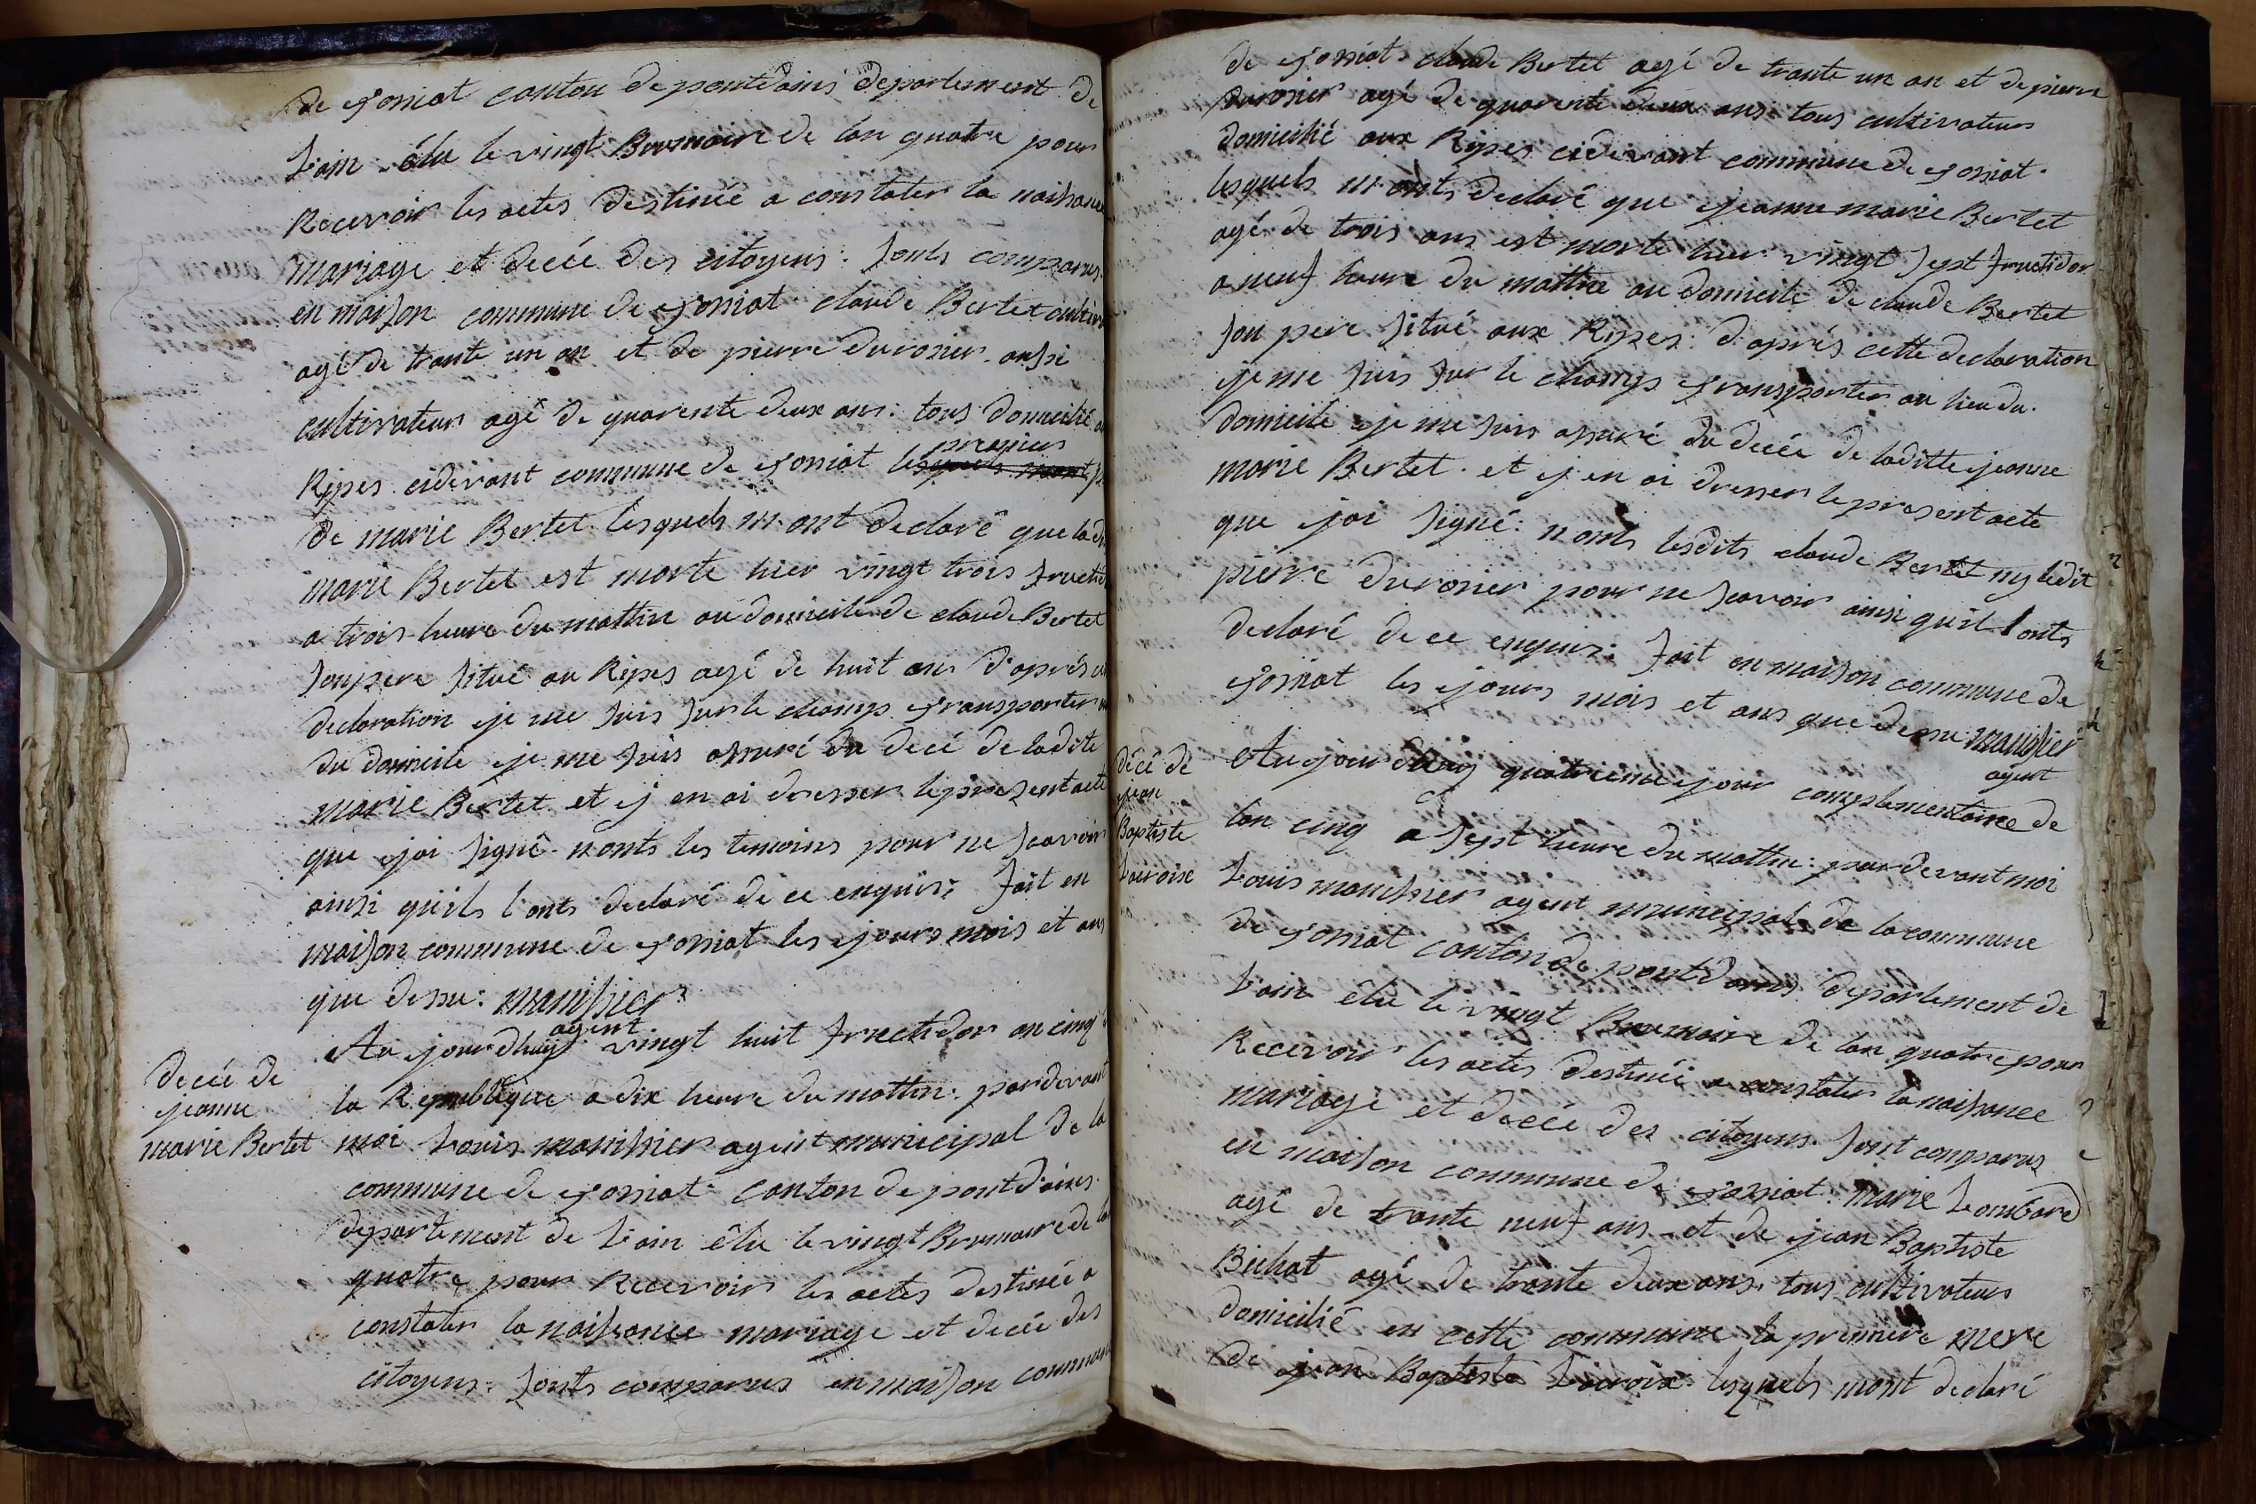 de jossiat canton de pontdains departement de
Lain élu le vingt Brumaire de lan quatre pour
Recevoir les actes destinée a constater la naissance
mariage et decée des citoyens : sonts comparus
en maison commune de jossiat claude Bertet cultiv
agé de trante un an et de pierre durosier aussi
cultivateur agé de quarente deux ans : tous domicilié a
premier
Ripes cidevant commune de jossiat lesquels mont p
de marie Bertet lesquels m ont declaré que ladi
marie Bertet est morte hier vingt trois fructi
a trois heure du mattin au domicile de claude Bertet
son pere situé au Ripes agé de huit ans d'aprés ce
declaration je me suis sur le champs transporter a
du domicile je me suis assuré du decé de ladite
marie Bertet et j en ai dresser le present acte
que jai signé n onts les temoins pour ne scavoir
ainsi quils l'onts declaré de ce enquis : fait en
maison commune de jossiat les jours mois et ans
que dessu : manissier
agent
decée de
jeanne
marie Bertet
Au jourdhuy vingt huit fructidor an cinq
la Republique a dix heure du mattin : pardevant
moi Louis manissier agent municipal de la
commune de jossiat canton de pont d'ains
departement de Lain élu le vingt Brumaire de la
quatre pour Recevoir les actes destinée a
constater la naissance mariage et decée des
citoyens : sonts comparus en maison commune
de jossiat claude Bertet agé de trante un an et de pierre
durosier agé de quarente deux ans tous cultivateurs
domicilié aux Ripes cidevant commune de jossiat
lesquels m onts declaré que jeanne marie Bertet
agé de trois ans est morte hier vingt sept fructidor
a neuf heure du mattin au domicile de claude Bertet
son pere situé aux Ripes : d'aprés cette declaration
je me suis sur le champs transporter au lieu du
domicile je me suis assuré du decée de laditte jeanne
marie Bertet et j en ai dresser le present acte
que jai signé : n onts lesdits claude Bertet ny ledit
pierre durosier pour ne scavoir ainsi quil l onts
declaré de ce enquis : fait en maison commune de
jossiat les jours mois et ans que dessu manissier
agent
décé de
jean
Baptiste
Lacroix
Au jourdhuy quatrieme jour complementaire de
lan cinq a sept heure du mattin : pardevant moi
Louis manissier agent municipal de la commune
de jossiat canton de pont dains departement de
Lain élu le vingt Brumaire de lan quatre pour
Recevoir les actes destinée a constater la naissance
mariage et decée des citoyens sont comparus
en maison commune de jossiat : marie Lombard
agé de trante neuf ans et de jean Baptiste
Bichat agé de trante deux ans tous cultivateurs
domicilié en cette commune la premiere mere
de jean Baptiste Lacroix lesquels mont declaré